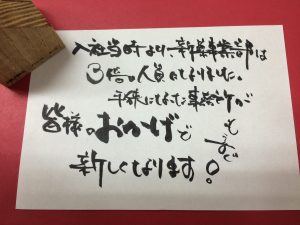 入社当時より、新築事業部は
3倍の人員となりました。
手狭になった事務所が
皆様のおかげで
もうすぐ
新しくなります!